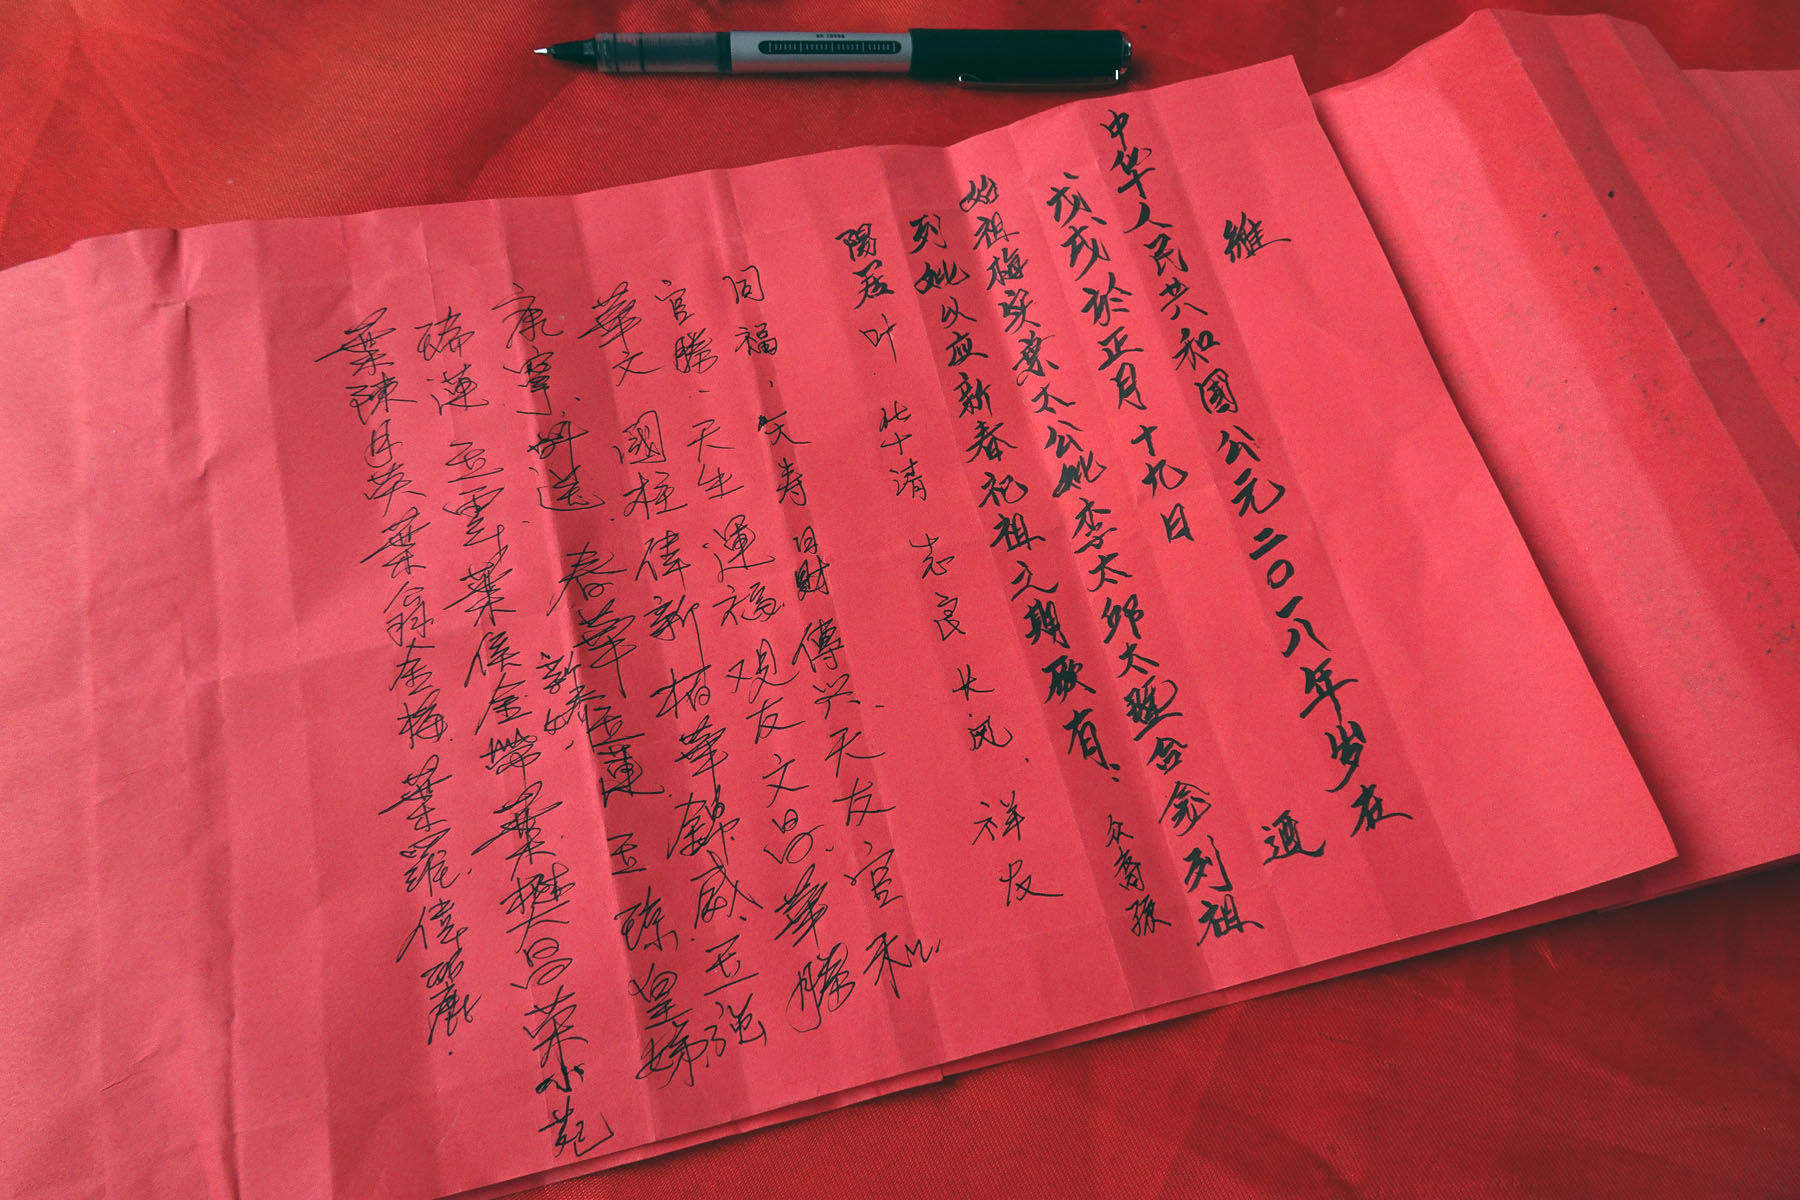 維
中华人民共和國公元二〇一八年岁在
戊戌於正月十九日 通
始祖梅实葉太公妣李太邱太暨合龛列祖
列妣以应新春祀祖之期厥有、众裔孫
陽居叶 华清 志良 长风、祥友
同福、文寿 日財 傳兴、天友 官和
官勝、天生 運福 观友 文昌 華勝
華文 國柱 偉新 柏華 錦威、玉强
康寧、 春華 玉蓮 玉珠 皇娣
新春
瑞蓮 玉雲 葉侯金帶 葉樊昌荣 小苑
葉陳月英 葉翁金梅 葉羅偉麗.